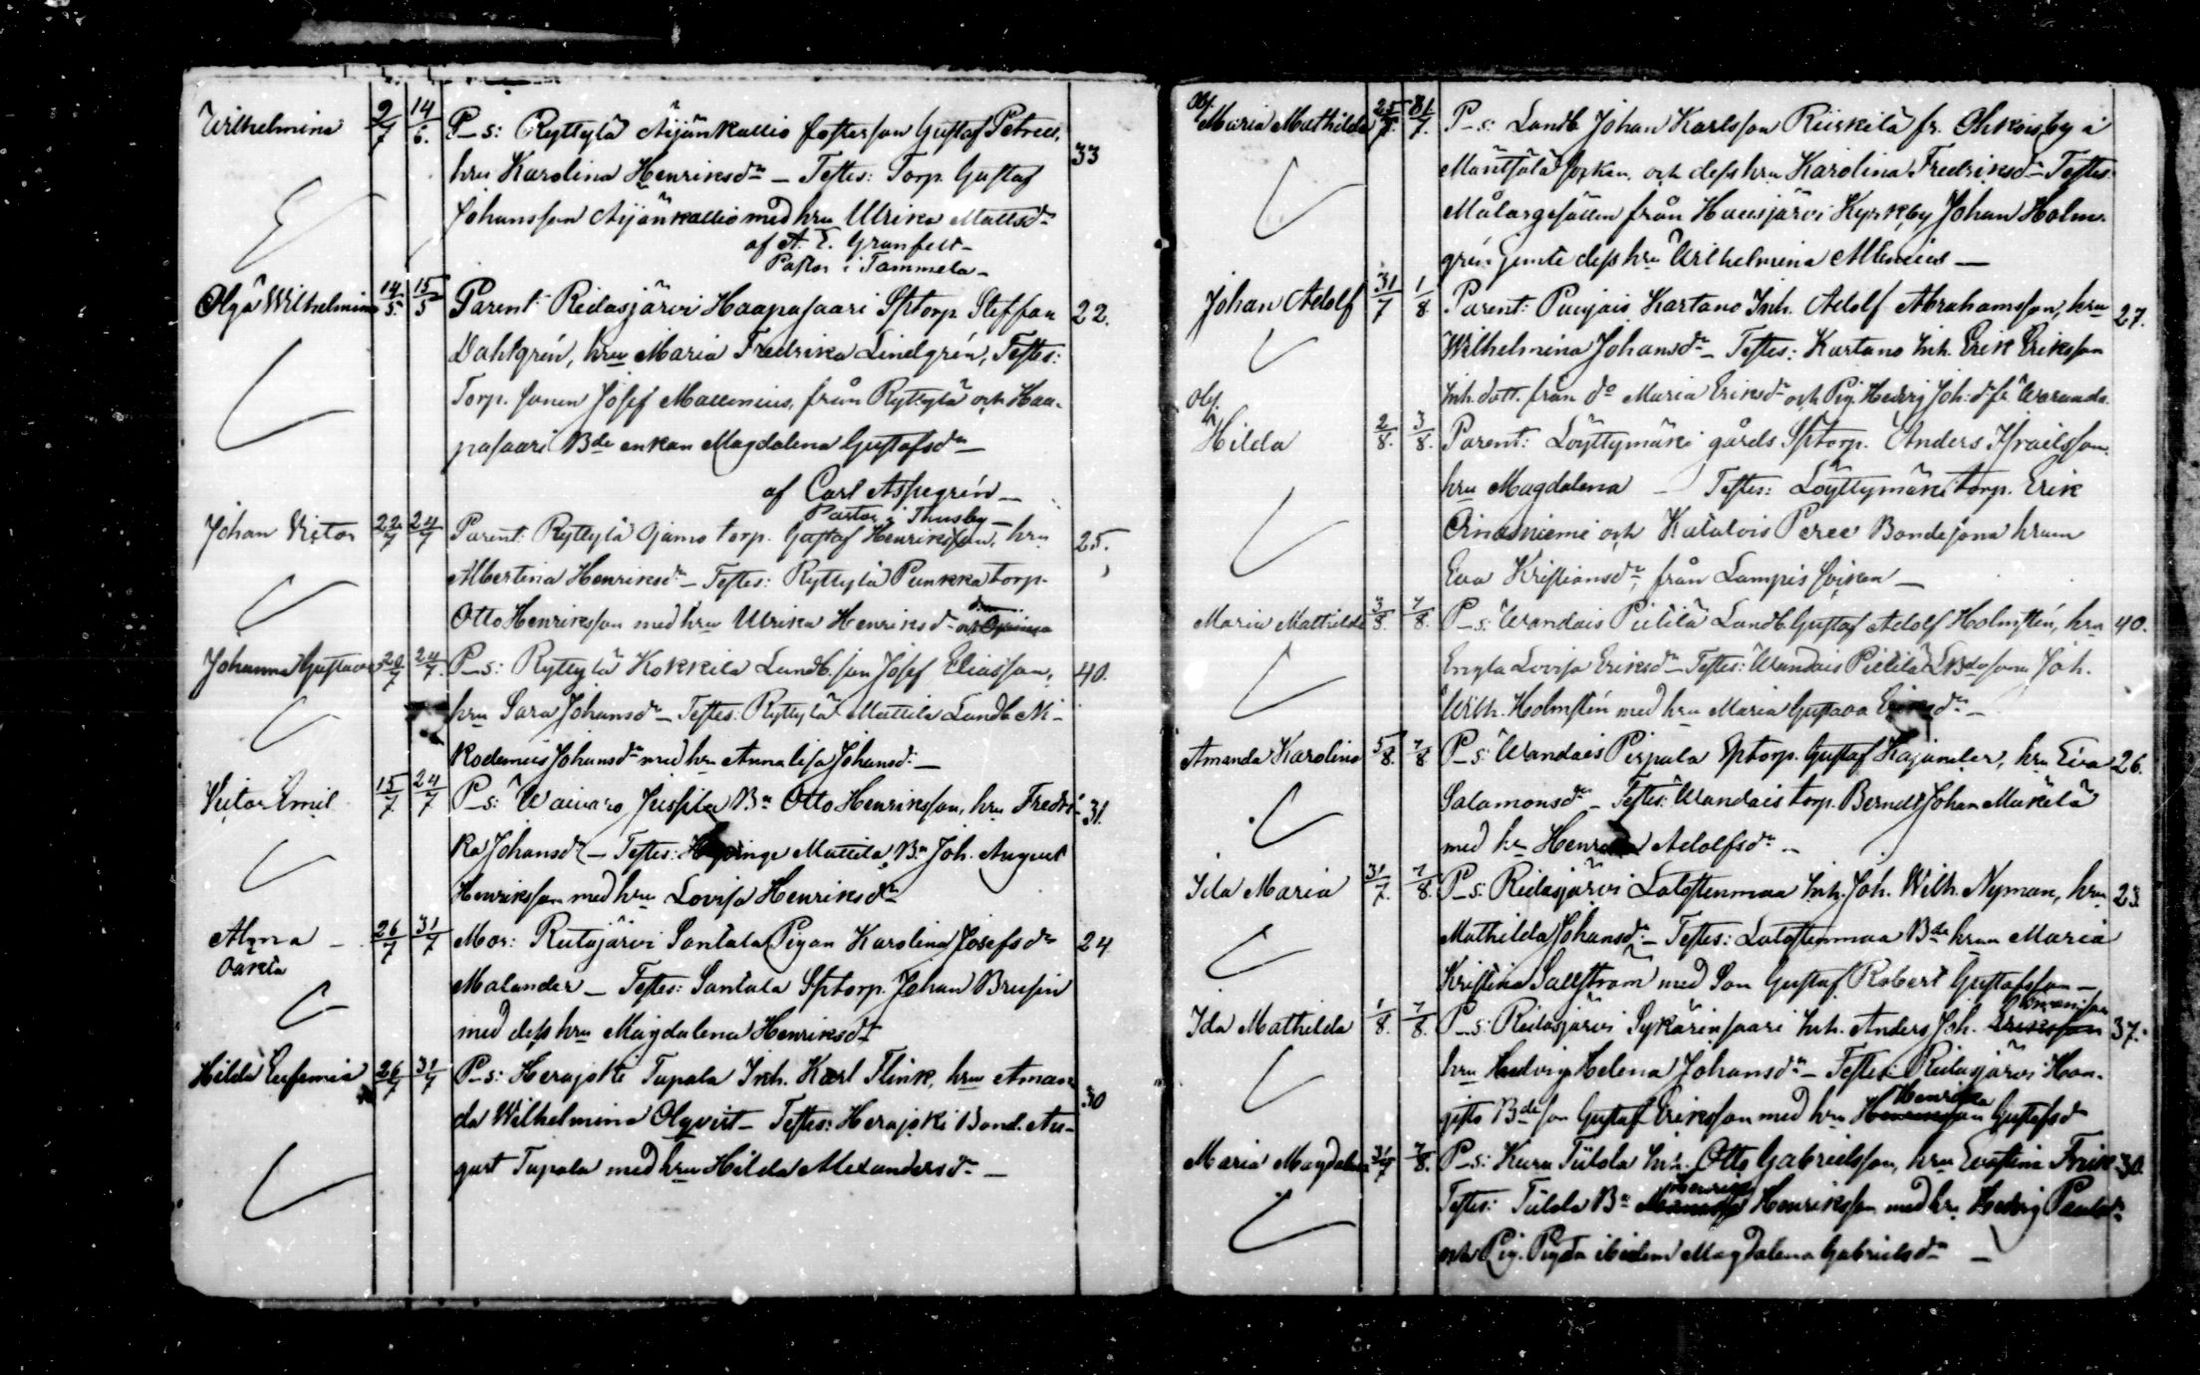 Wilhelmina 2/7 14/6. P_s: Ryttylä Äijänkallio fosterson Gustaf Petrell,
hru Karolina Henriksdr _ Testes: Torp. Gustaf 33
Johansson Äijänkallio med hru Ulrika Mattsdr
af A. E. Granfelt _
Pastor i Tammela _
Olga Wilhelmina 14/5 15/5 Parent: Ridasjärvi Haapasaari Sptorp Steffan 22.
Dahlgrén, hru Maria Fredrika Lindgrén, Testes:
Torp. sonen Josef Mallenius, från Ryttylä och Haa-
pasaari Bde enkan Magdalena Gustafsdr _
af Carl Aspegrén _
Pastor i Thusby _
Johan Victor 22/7 24/7 Parent: Ryttylä Ojamo torp. Gustaf Henriksson, hru 25.
Albertina Henriksdr _ Testes: Ryttylä Punkka torp.
Otto Henriksson med hru Ulrika Henriksdr
Johanna Gustava 20/7 24/7. P_s: Ryttylä Kokkila Landb. son Josef Eliasson, 40.
hru Sara Johansdr _ Testes: Ryttylä Mattila Landb. Ni-
kodemus Johansdr med hru Annalisa Johansdr _
Victor Emil 15/7 24/7 P_s: Waiwaro Jussila Bn Otto Henriksson, hru Fredri- 31.
ka Johansdr _ Testes: Hyvinge Mattila Bn Joh. August
Henriksson med hru Lovisa Henriksdr
Alma _ 26/7 31/7 Mor: Ridasjärvi Santala Pigan Karolina Josefsdr 24
oäkta
Malander _ Testes: Santala Sptorp. Johan Brusin
med dess hru Magdalena Henriksdr
Hilda Eufemia 26/7 31/7 P_s: Herajoki Tapala Inh. Karl Flink, hru Aman- 30
da Wilhelmina Olqvist _ Testes: Herajoki Bond. Au-
gust Tapala med hru Hilda Alexandersdr _
Obj. Maria Mathilda 25/7. 31/7. P_s: Landb. Johan Karlsson Riiskilä fr. Ohkoisby i
Mäntsälä socken, och dess hru Karolina Fredriksdr _ Testes
Målargesällen från Hausjärvi Kyrkby Johan Holm-
grén jemte dess hru Wilhelmina Allenius _
Johan Adolf 31/7 1/8 Parent: Puujais Kartano Inh. Adolf Abrahamsson, hru 27.
Wilhelmina Johansdr _ Testes: Kartano Inh. Erik Eriksson
Inh. dott. från do Maria Eriksdr och Pig. Hedvig Joh:dr fr.
Obj Hilda 2/8. 3/8. Parent: Löyttymäki gårds Sptorp. Anders Israelsson,
hru Magdalena _ Testes: Löyttymäki torp. Erik
och Peree Bondesona hrun
Eva Kristiansdr, från Lampis socken _
Maria Mathilda 3/8. 7/8. P_s: Wandais Pietilä Landb. Gustaf Adolf Holmstén, hru 40.
Engla Lovisa Eriksdr _ Testes: Wandais Pietilä LBdesona Joh.
Wilh. Holmstén med hru Maria Gustava _
Amanda Karolina 5/8. 7/8 P_s: Wandais Pirpala Sptorp. Gustaf Kajander, hru Eva 26.
Salamonsdr _ Testes: Wandais torp. Berndt Johan Mäkelä
med hru Adolfsdr _
Ida Maria 31/7. 7/8. P_s: Ridasjärvi Latostenmaa Inh. Joh. Wilh. Nyman, hru 23.
Mathilda Johansdr _ Testes: Latostenmaa Bde hrun Maria
Kristina Sallström med Son Gustaf Robert Gustafsson _
Ida Mathilda 1/8. 7/8. P_s: Ridasjärvi Sykärinsaari Inh. Anders Joh. Eriksson 37.
hru Hedvig Helena Johansdr _ Testes: Ridasjärvi Han-
gisto Bde son Gustaf Eriksson med hru Henrika Gustafsdr
Maria Magdalena 31/7 7/8. P_s: Kara Tiilola Inh. Otto Gabrielsson, hru Evastina Frisk 30.
Testes: Tiilola Bn Henrik Henriksson med hru Hedvig Paulsdr
och Pig. ibidem Magdalena Gabrielsdr _